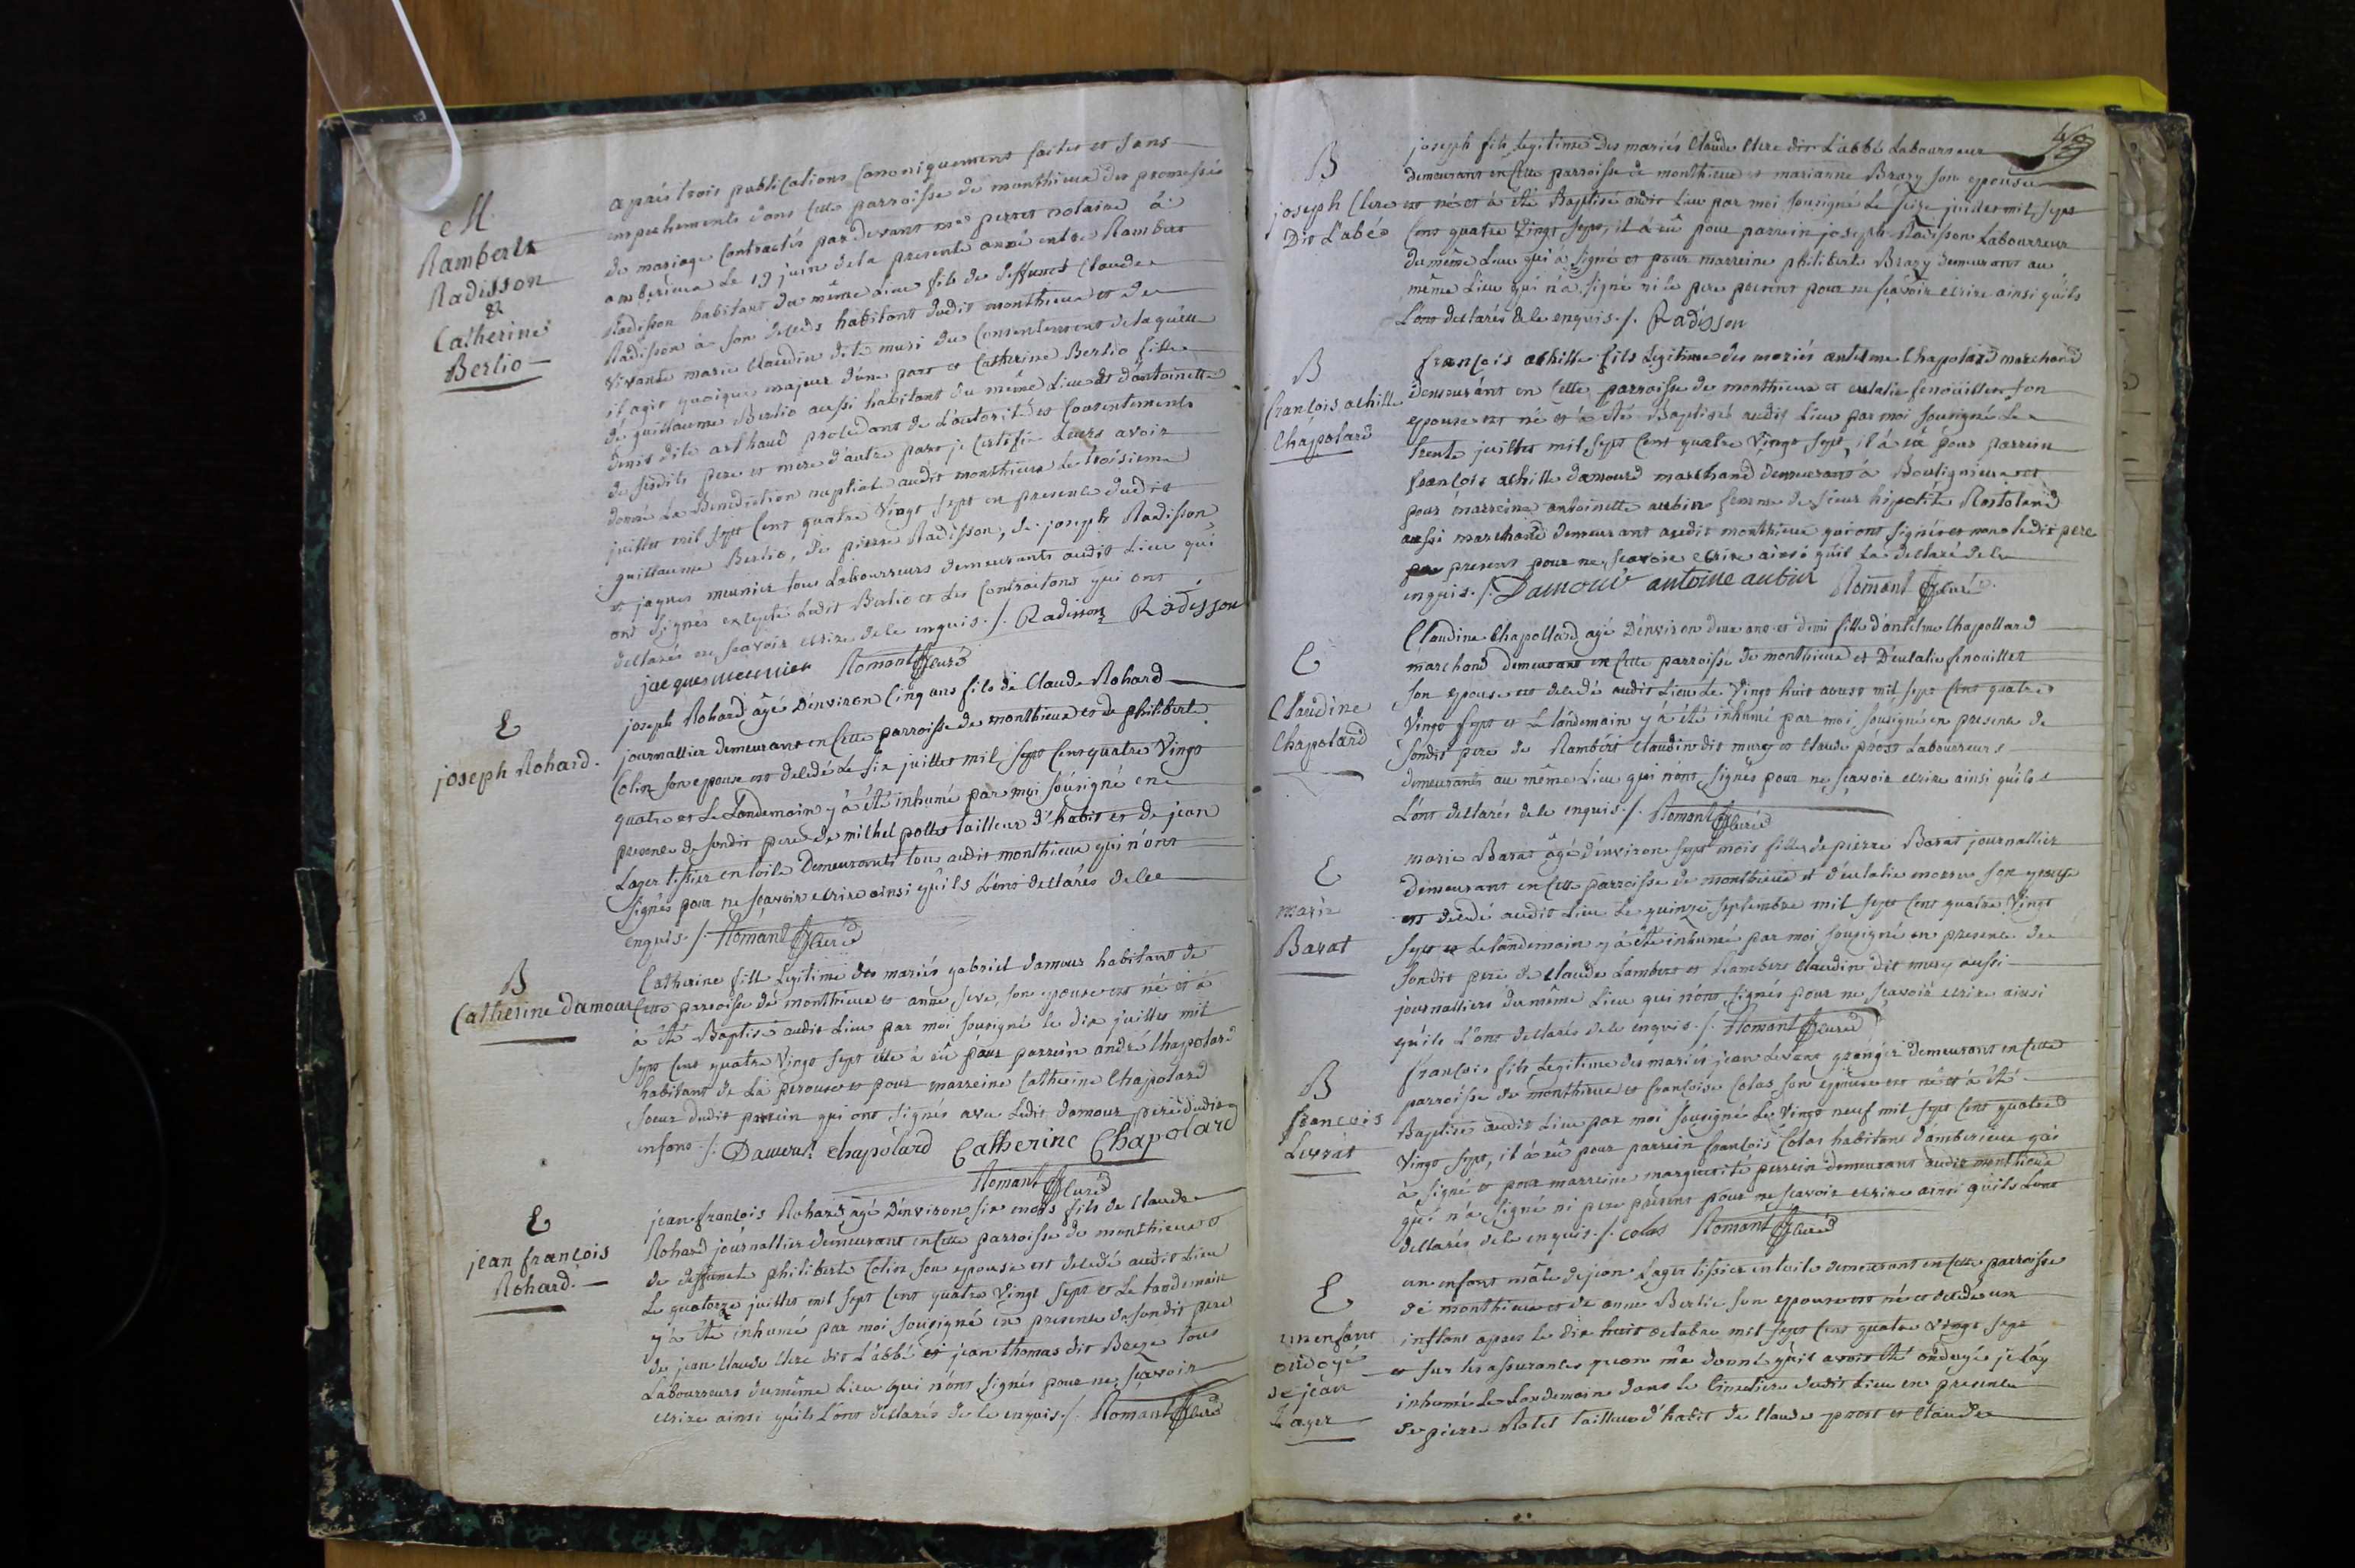 M
Rambert
Radisson
&
Catherine
Berlio
apréstrois publications Canoniquement faites et sans
empechements dans cette parroisse de monthieux des promesses
de mariage Contractés pardevant me perret notaire à
amberieux Le 19 juin dela presente anné entre Rambert
Radisson habitant du même Lieu fils de deffunct Claude
Radisson à son deceds habitant dudit monthieux et de
vivante marie Claudin dite musi du Consentement delaquelle
il agit quoique majeur d'une part et Catherine Berlio fille
de guillaume Berlio aussi habitant du même Lieu et d'antoinette
denis dite arthaud procedant de L'autorité et Consentements
de sesdits pere et mere d'autre part je Certifie Leurs avoir
donné La Benediction nuptiale audit monthieux Le troisieme
juillet mil sept Cent quatre Vingt sept en presence dudit
guillaume Berlio, de pierre Radisson, de joseph Radisson
et jaques meunier tous Labourreurs demeurants audit Lieu qui
ont signés excepté Ledit Berlio et Les Contractans qui ont
dellarés ne sçavoir ecrire dele enquis ./. Radisson Radisson
jacques meunier Romant Curé
E
joseph Rohard.
joseph Rohard âgé D'environ Cinq ans fils de Claude Rohard
journallier demeurant en Cette parroisse de monthieux et de philiberte
Colin son epouse est decedé Le six juillet mil sept Cent quatre Vingt
quatre et Le Landemain y à été inhumé par moi sousigné en
presence de sondit pere de michel pollet tailleur d'habit et de jean
Lager tissier en toile Demeurants tous audit monthieux qui n'ont
signés pour ne sçavoir ecrire ainsi qu'ils L'ont dellarés dele
enquis ./. Romant Curé
B
Catherine damour
Catherine fille Legitime des mariés gabriel damour habitant de
Cette parroisse de monthieux et anne seve, son epouse est né et à
à été Baptisé audit Lieu par moi sousigné le dix juillet mil
sept Cent quatre Vingt sept elle à eû pour parrein andré Chapolard
habitant de La perouse et pour marreine Catherine Chapolard
soeur dudit parrein qui ont signés avec Ledit damour pere dudit
enfant ./. Damour chapolard Catherine Chapolard
Romant Curé
E
jean francois
Rohard.
jean francois Rohard âgé D'environ six mois fils de Claude
Rohard journallier demeurant en Cette parroisse de monthieux et
de deffuncte philiberte Colin son epouse est decedé audit Lieu
Le quatorze juillet mil sept Cent quatre Vingt sept et Le Landemain
y à été inhumé par moi sousigné en presence de sondit pere
de jean Claude Clerc dit L'abbé et jean thomas dit Beze tous
Labourreurs du même Lieu qui n'ont signés pour ne sçavoir
ecrire ainsi qu'ils L'ont dellarés de le enquis ./. Romant Curé
B
joseph Clerc
Dit L'abé
joseph fils Legitime des mariés Claude Clerc dit L'abbé Labourreur
demeurant en Cette parroisse de monthieux et marianne Brazy son epouse
est né et à été Baptisé audit Lieu par moi sousigné Le seize juillet mil sept
Cent quatre Vingt sept, il à eû pour parrein joseph Radisson Labourreur
du même Lieu qui à signé et pour marreine philiberte Brazy demeurant au
même Lieu qui n'à signé ni le pere present pour ne sçavoir ecrire ainsi qu'ils
L'ont dellarés de le enquis ./. Radisson
B
francois achille
Chapolard
françois achille fils Legitime des mariés antelme Chapolard marchand
demeurant en Cette parroisse de monthieux et eulalie fenouillet son
epouse est né et à été Baptisé audit Lieu par moi sousigné Le
trente juillet mil sept Cent quatre Vingt sept, il à eû pour parrein
françois achille damourd marchand demeurant à Bouligneux et
pour marreine antoinette aubin femme de sieur hipolite Rostoland
aussi marchand demeurant audit monthieux qui ont signés et non ledit pere
present pour ne sçavoir ecrire ainsi quil La dellaré de le
enquis ./. Damour antoine aubin Romant Curé
E
Claudine
Chapolard
Claudine Chapollard agé D'environ deux ans et demi fille d'antelme Chapollard
marchand demeurant en Cette parroisse de monthieux et D'eulalie fenouillet
son epouse est decedé audit Lieu Le Vingt huit aoust mil sept Cent quatre
Vingt sept et L landemain y à été inhumé par moi sousigné en presence de
sondit pere de Rambert Claudin dit mury et Claude prost Labourreurs
demeurants au même Lieu qui n'ont signés pour ne sçavoir ecrire ainsi qu'ils
L'ont dellarés dele enquis ./. Romant Curé
E
marie
Barat
marie Barat âgé d'environ sept mois fille de pierre Barat journallier
demeurant en Cette parroisse de monthieux et d'eulalie son epouse
est decedé audit Lieu Le quinze septembre mil sept Cent quatre Vingt
sept et Le landemain y à été inhumé par moi sousigné en presence de
sondit pere de Claude Lambert et Rambert Claudin dit mury aussi
journalliers du même Lieu qui n'ont signés pour ne sçavoir ecrire ainsi
qu'ils L'ont dellarés dele enquis ./. Romant Curé
B
francois
Levrat
françois fils Legitime des mariés jean Levrat granger demeurant en Cette
parroisse de monthieux et françoise Colas son epouse est né et à été
Baptisé audit Lieu par moi sousigné Le Vingt neuf mil sept Cent quatre
Vingt sept, il à eû pour parrein françois Colas habitant d'amberieux qui
à signé et pour marreine marguerite perrein demeurant audit monthieux
qui n'à signé ni pere present pour ne sçavoir ecrire ainsi quils Lont
dellarés dele enquis ./. colas Romant Curé
E
un enfant
ondoyé
de jean
Lager
un enfant mâle de jean Lager tissier en toile demeurant en Cette parroisse
de monthieux et de anne Berlie son epouse est né et decede un
instant apres le dix huit octobre mil sept Cent quatre vingt sept
et sur les assurances quon m'a donné qu'il avoit été ondoyé je l'ay
inhumé Le Landemain dans le Cimetiere dudit Lieu en presence
de pierre Rotet tailleur d'habit de Claude prost et Claude